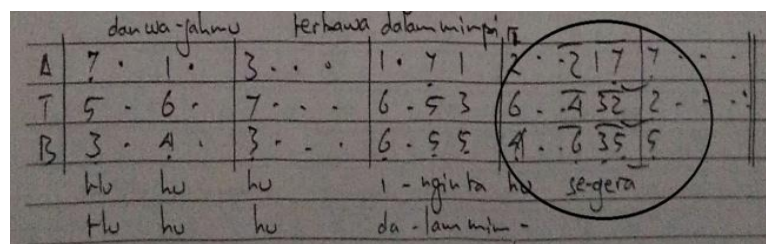 dan wa-jahmu terbawa dalam mimpi
A 7 . 1 . 3 . . . 1 . 7 1 2 . . 2 1 7 7 . . .
T 5 . 6 . 7 . . . 6 . 5 3 6 . . 4 3 2 2 . . .
B 3 . 4 . 3 . . . 6 . 5 5 4 . . 6 3 5 5
Hu hu hu I - nginta hu se-gera
Hu hu hu da - lam mim -